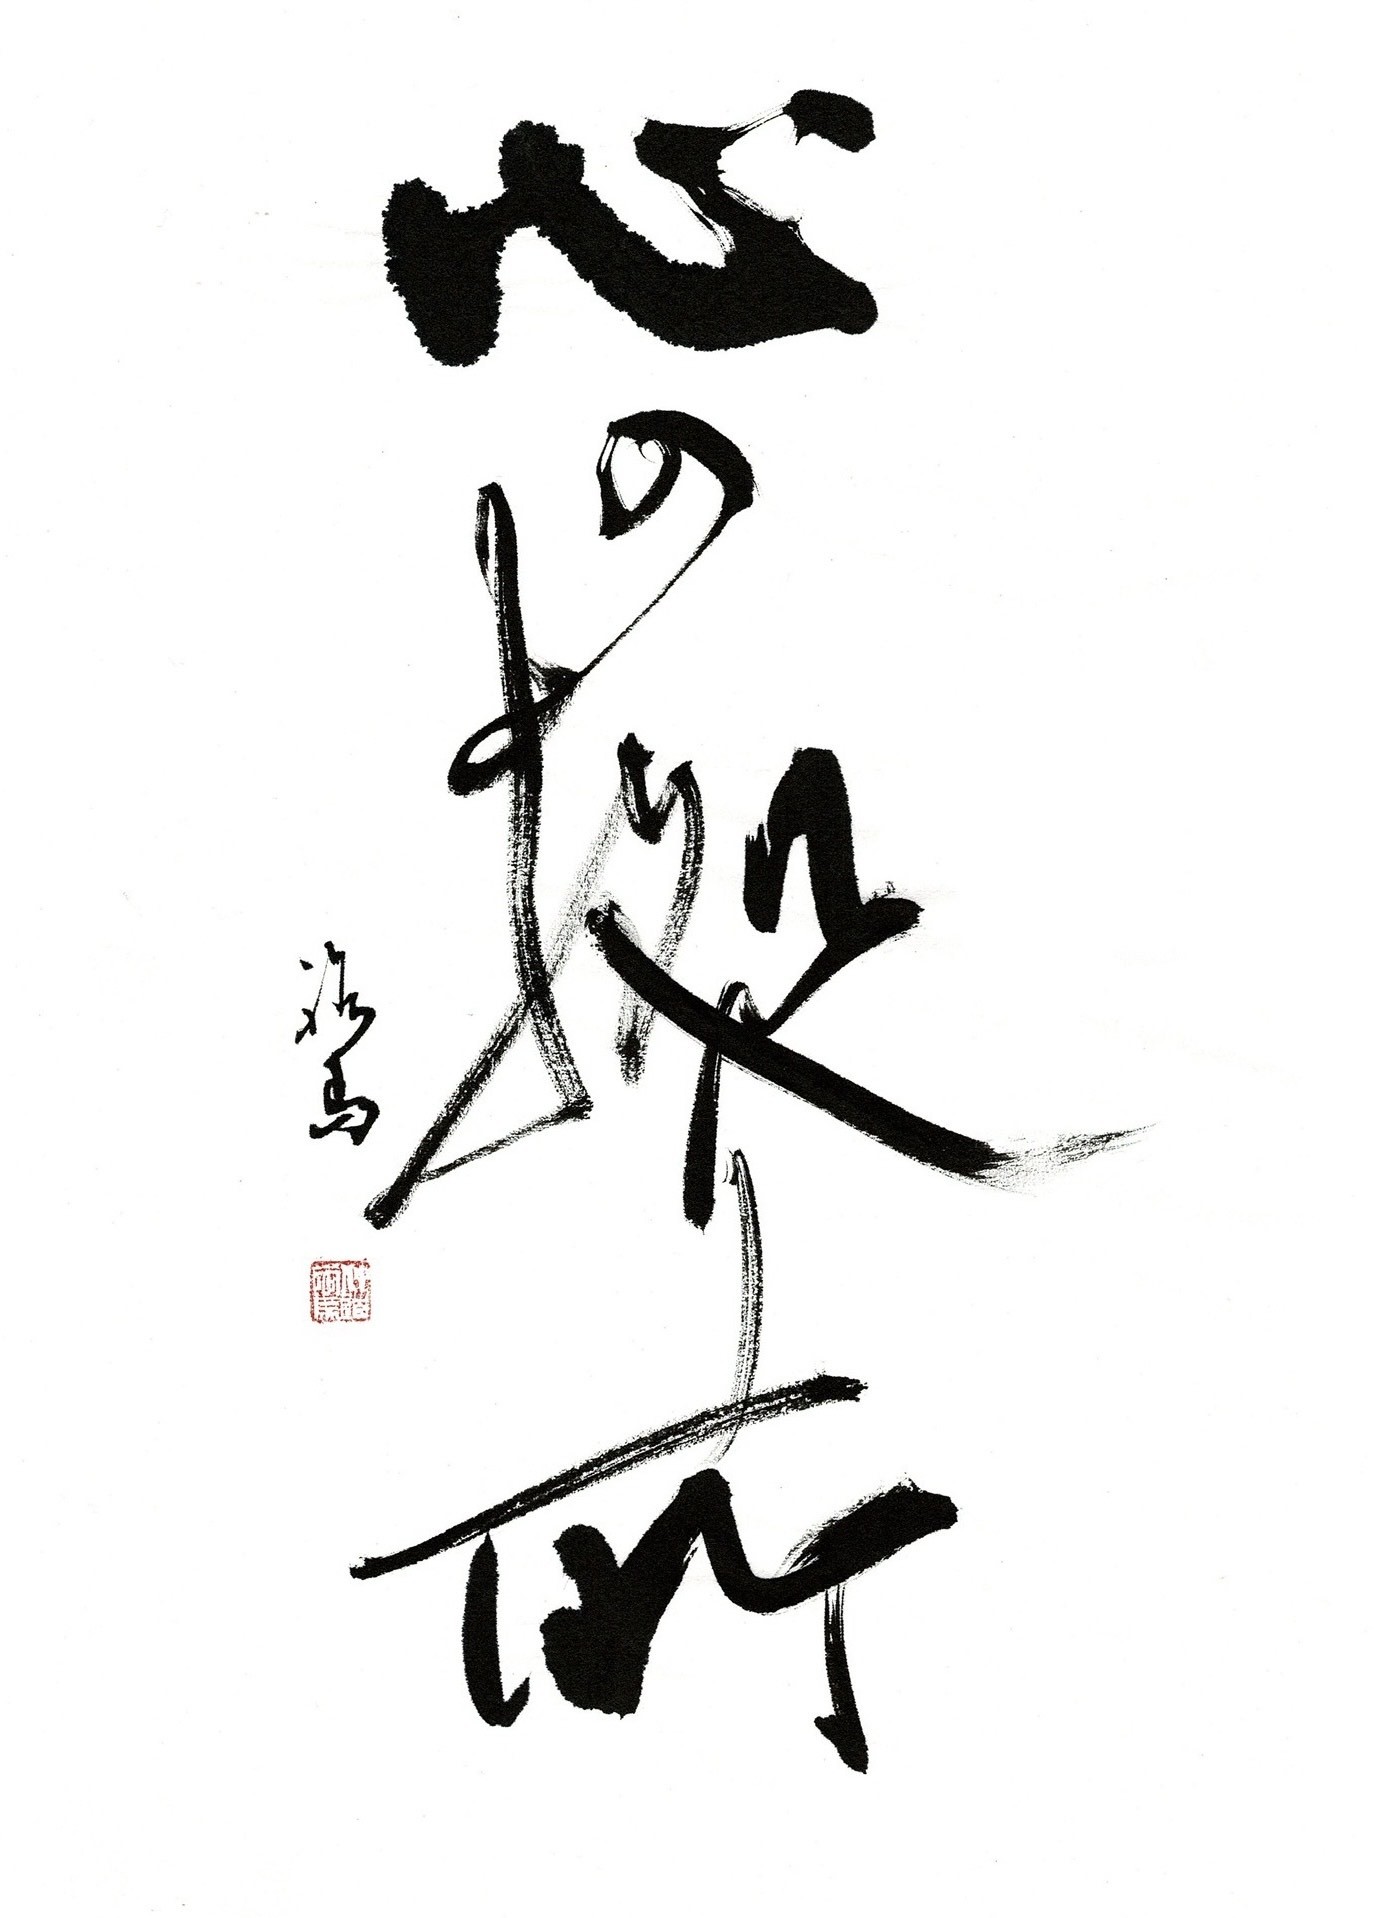 心の拠り所